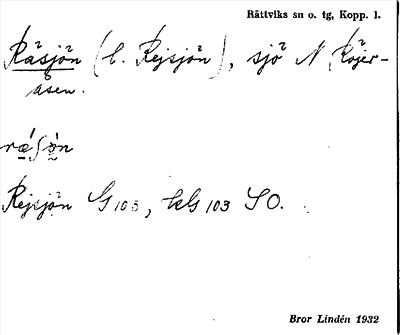 Rättviks sn o. tg, Kopp. l.
Räsjön (l. Rejsjön), sjö N Röjer-
åsen.
ræ´ʃòn
Rejsjön G 103, kG 103 SO.
Bror Lindén 1932